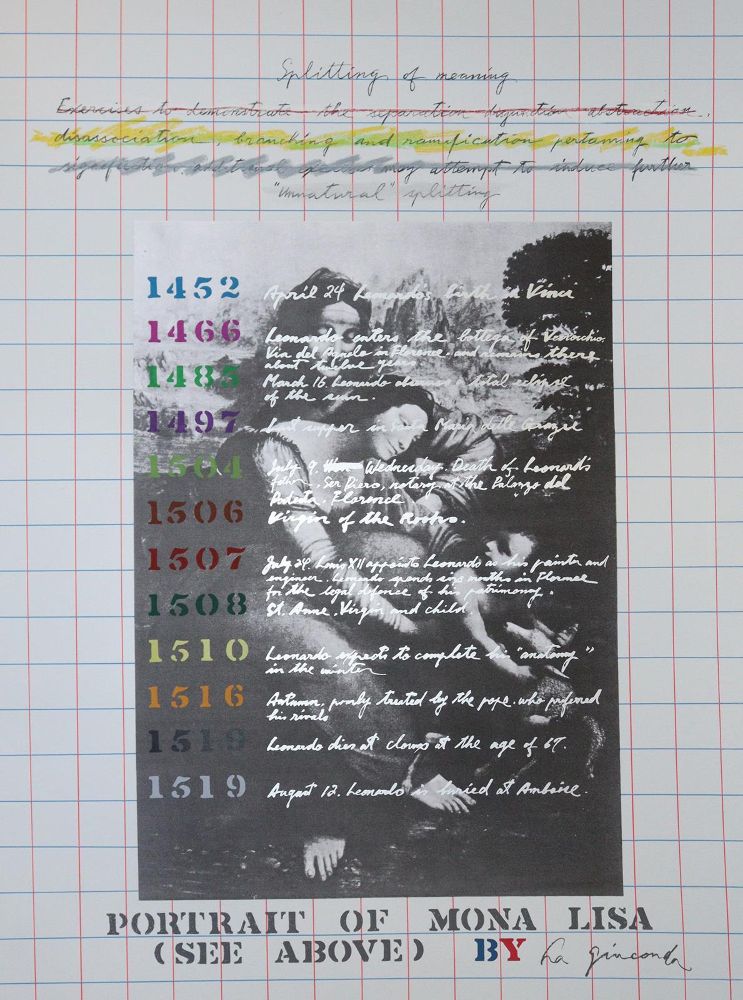 Splitting of meaning
Exercises to demonstrate the separation disjunction abstraction,
disassociation, branching and ramification pertaining to
may attempt to induce further
"unnatural" splitting
1452 April 24 Leonardo's birth in Vince
1466 Leonardo enters the bottega of Verrochio.
Via del Agnelo in Florence. and remains there
about twelve years.
1485 March 16. Leonardo observes a total eclipse
of the sun.
1497 Last supper in Santa Maria delle Grazie
1504 July 9. Wednesday. Death of Leonard's
father. Ser Piero, notary at the Palazzo del
Podesta. Florence
1506 Virgin of the Rocks.
1507 July 24. Louis XII appoints Leonardo as his painter and
engineer. Leonardo spends six months in Florence
for the legal defence of his patrimony.
1508 St. Anne. Virgin and child.
1510 Leonardo expects to complete his "anatomy"
in the winter
1516 Autumn, poorly treated by the pope. who preferred
his rivals
1519 Leonardo dies at cloux at the age of 67.
1519 August 12. Leonardo is buried at Amboise.
PORTRAIT OF MONA LISA
(SEE ABOVE) BY La gioconda